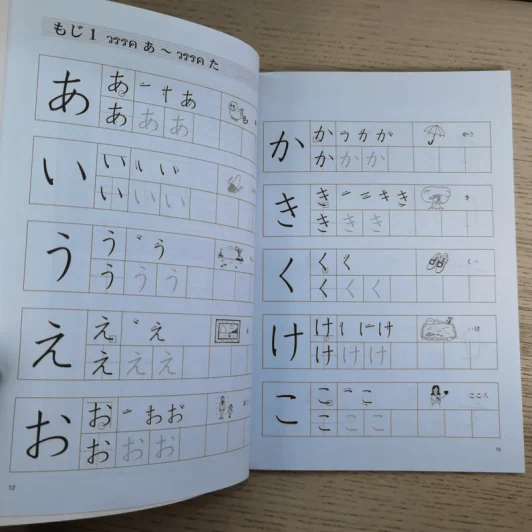 もじ 1 วรรค あ ～ วรรค た
あ あ ー あ
あ あ あ
い い い
い い い
う う う
う う う
え え え
え え え
お お ー お お
お お お
12
か か つ か か かさ
か か か
き き ー ニ き き き
き き き
く く く くつ
く く く
け け l に け いけ
け け け
こ こ こ こころ
こ こ こ
13